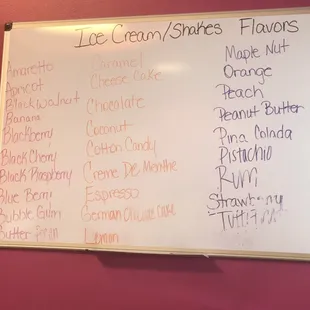 Ice Cream/Shakes Flavors
Amaretto
Apricot
Black Walnut
Banana
Blackberry
Black Cherry
Black Raspberry
Blue Berri
Bubble Gum
Butter
Caramel
Cheese Cake
Chocolate
Coconut
Cotton Candy
Creme De Menthe
Espresso
German
Lemon
Maple Nut
Orange
Peach
Peanut Butter
Pina Colada
Pistachio
Rum
Strawberry